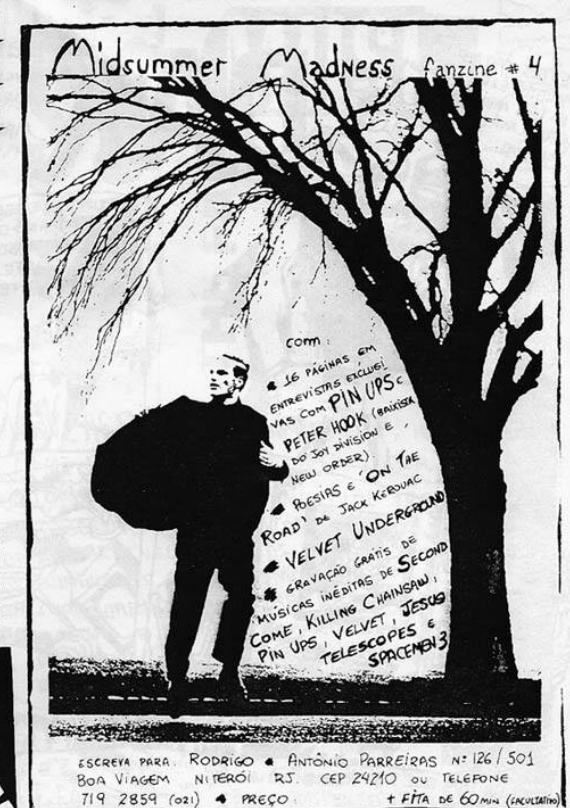 Midsummer Madness fanzine # 4
com:
16 PÁGINAS EM
ENTREVISTAS EXCLUSI
VAS COM PIN UPS E
PETER HOOK (BAIXISTA
DO JOY DIVISION E
NEW ORDER).
POESIAS E 'ON THE
ROAD' DE JACK KEROUAC
VELVET UNDERGROUND
GRAVAÇÃO GRÁTIS DE
MÚSICAS INÉDITAS DE SECOND
COME, KILLING CHAINSAW,
PIN UPS, VELVET, JESUS
TELESCOPES E
SPACEMEN 3
ESCREVA PARA: RODRIGO ANTÔNIO PARREIRAS Nº 126 / 501
BOA VIAGEM NITERÓI RJ. CEP 24210 OU TELEFONE
719 2859 (021) PREÇO: + FITA DE 60 MIN (FACULTATIVO)